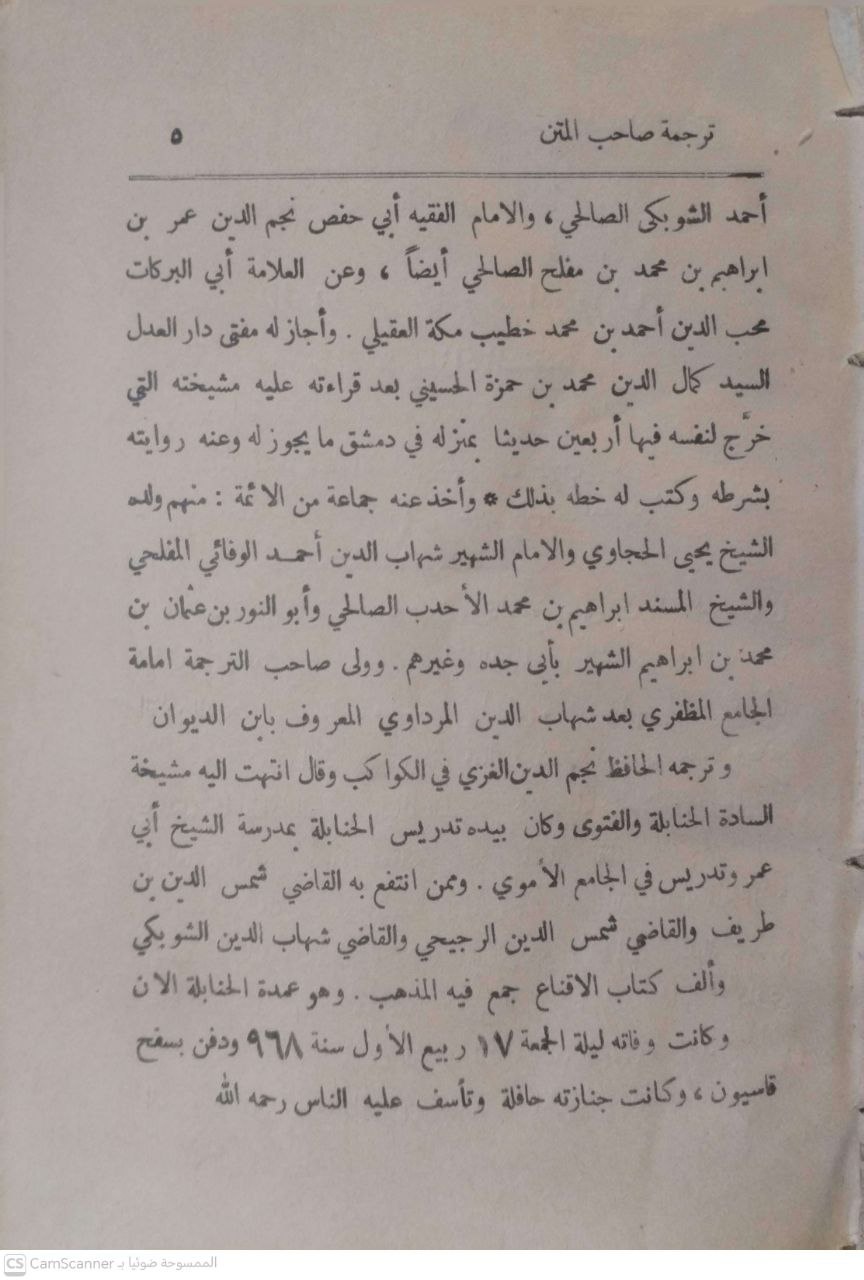 ترجمة صاحب المتن ٥
أحمد الشويكى الصالحي ، والامام الفقيه أبي حفص نجم الدين عمر بن
ابراهيم بن محمد بن مفلح الصالحي أيضاً ، وعن العلامة أبي البركات
محب الدين أحمد بن محمد خطيب مكة العقيلي . وأجاز له مفتى دار العدل
السيد كمال الدين محمد بن حمزة الحسيني بعد قراءته عليه مشيخته التي
خرَّج لنفسه فيها أربعين حديثا بمنزله في دمشق ما يجوز له وعنه روايته
بشرطه وكتب له خطه بذلك * وأخذ عنه جماعة من الائمة : منهم ولده
الشيخ يحيى الحجاوي والامام الشهير شهاب الدين أحمد الوفائي المفلحي
والشيخ المسند ابراهيم بن محمد الأحدب الصالحي وأبو النور بن عثمان بن
محمد بن ابراهيم الشهير بأبي جده وغيرهم . وولى صاحب الترجمة امامة
الجامع المظفري بعد شهاب الدين المرداوي المعروف بابن الديوان
وترجمه الحافظ نجم الدين الغزي في الكواكب وقال انتهت اليه مشيخة
السادة الحنابلة والفتوى وكان بيده تدريس الحنابلة بمدرسة الشيخ أبي
عمر وتدريس في الجامع الأموي . وممن انتفع به القاضي شمس الدين بن
طريف والقاضي شمس الدين الرجيحي والقاضي شهاب الدين الشويكي
وألف كتاب الاقناع جمع فيه المذهب . وهو عمدة الحنابلة الان
وكانت وفاته ليلة الجمعة ١٧ ربيع الأول سنة ٩٦٨ ودفن بسفح
قاسيون ، وكانت جنازته حافلة وتأسف عليه الناس رحمه الله
CS CamScanner الممسوحة ضوئيا بـ